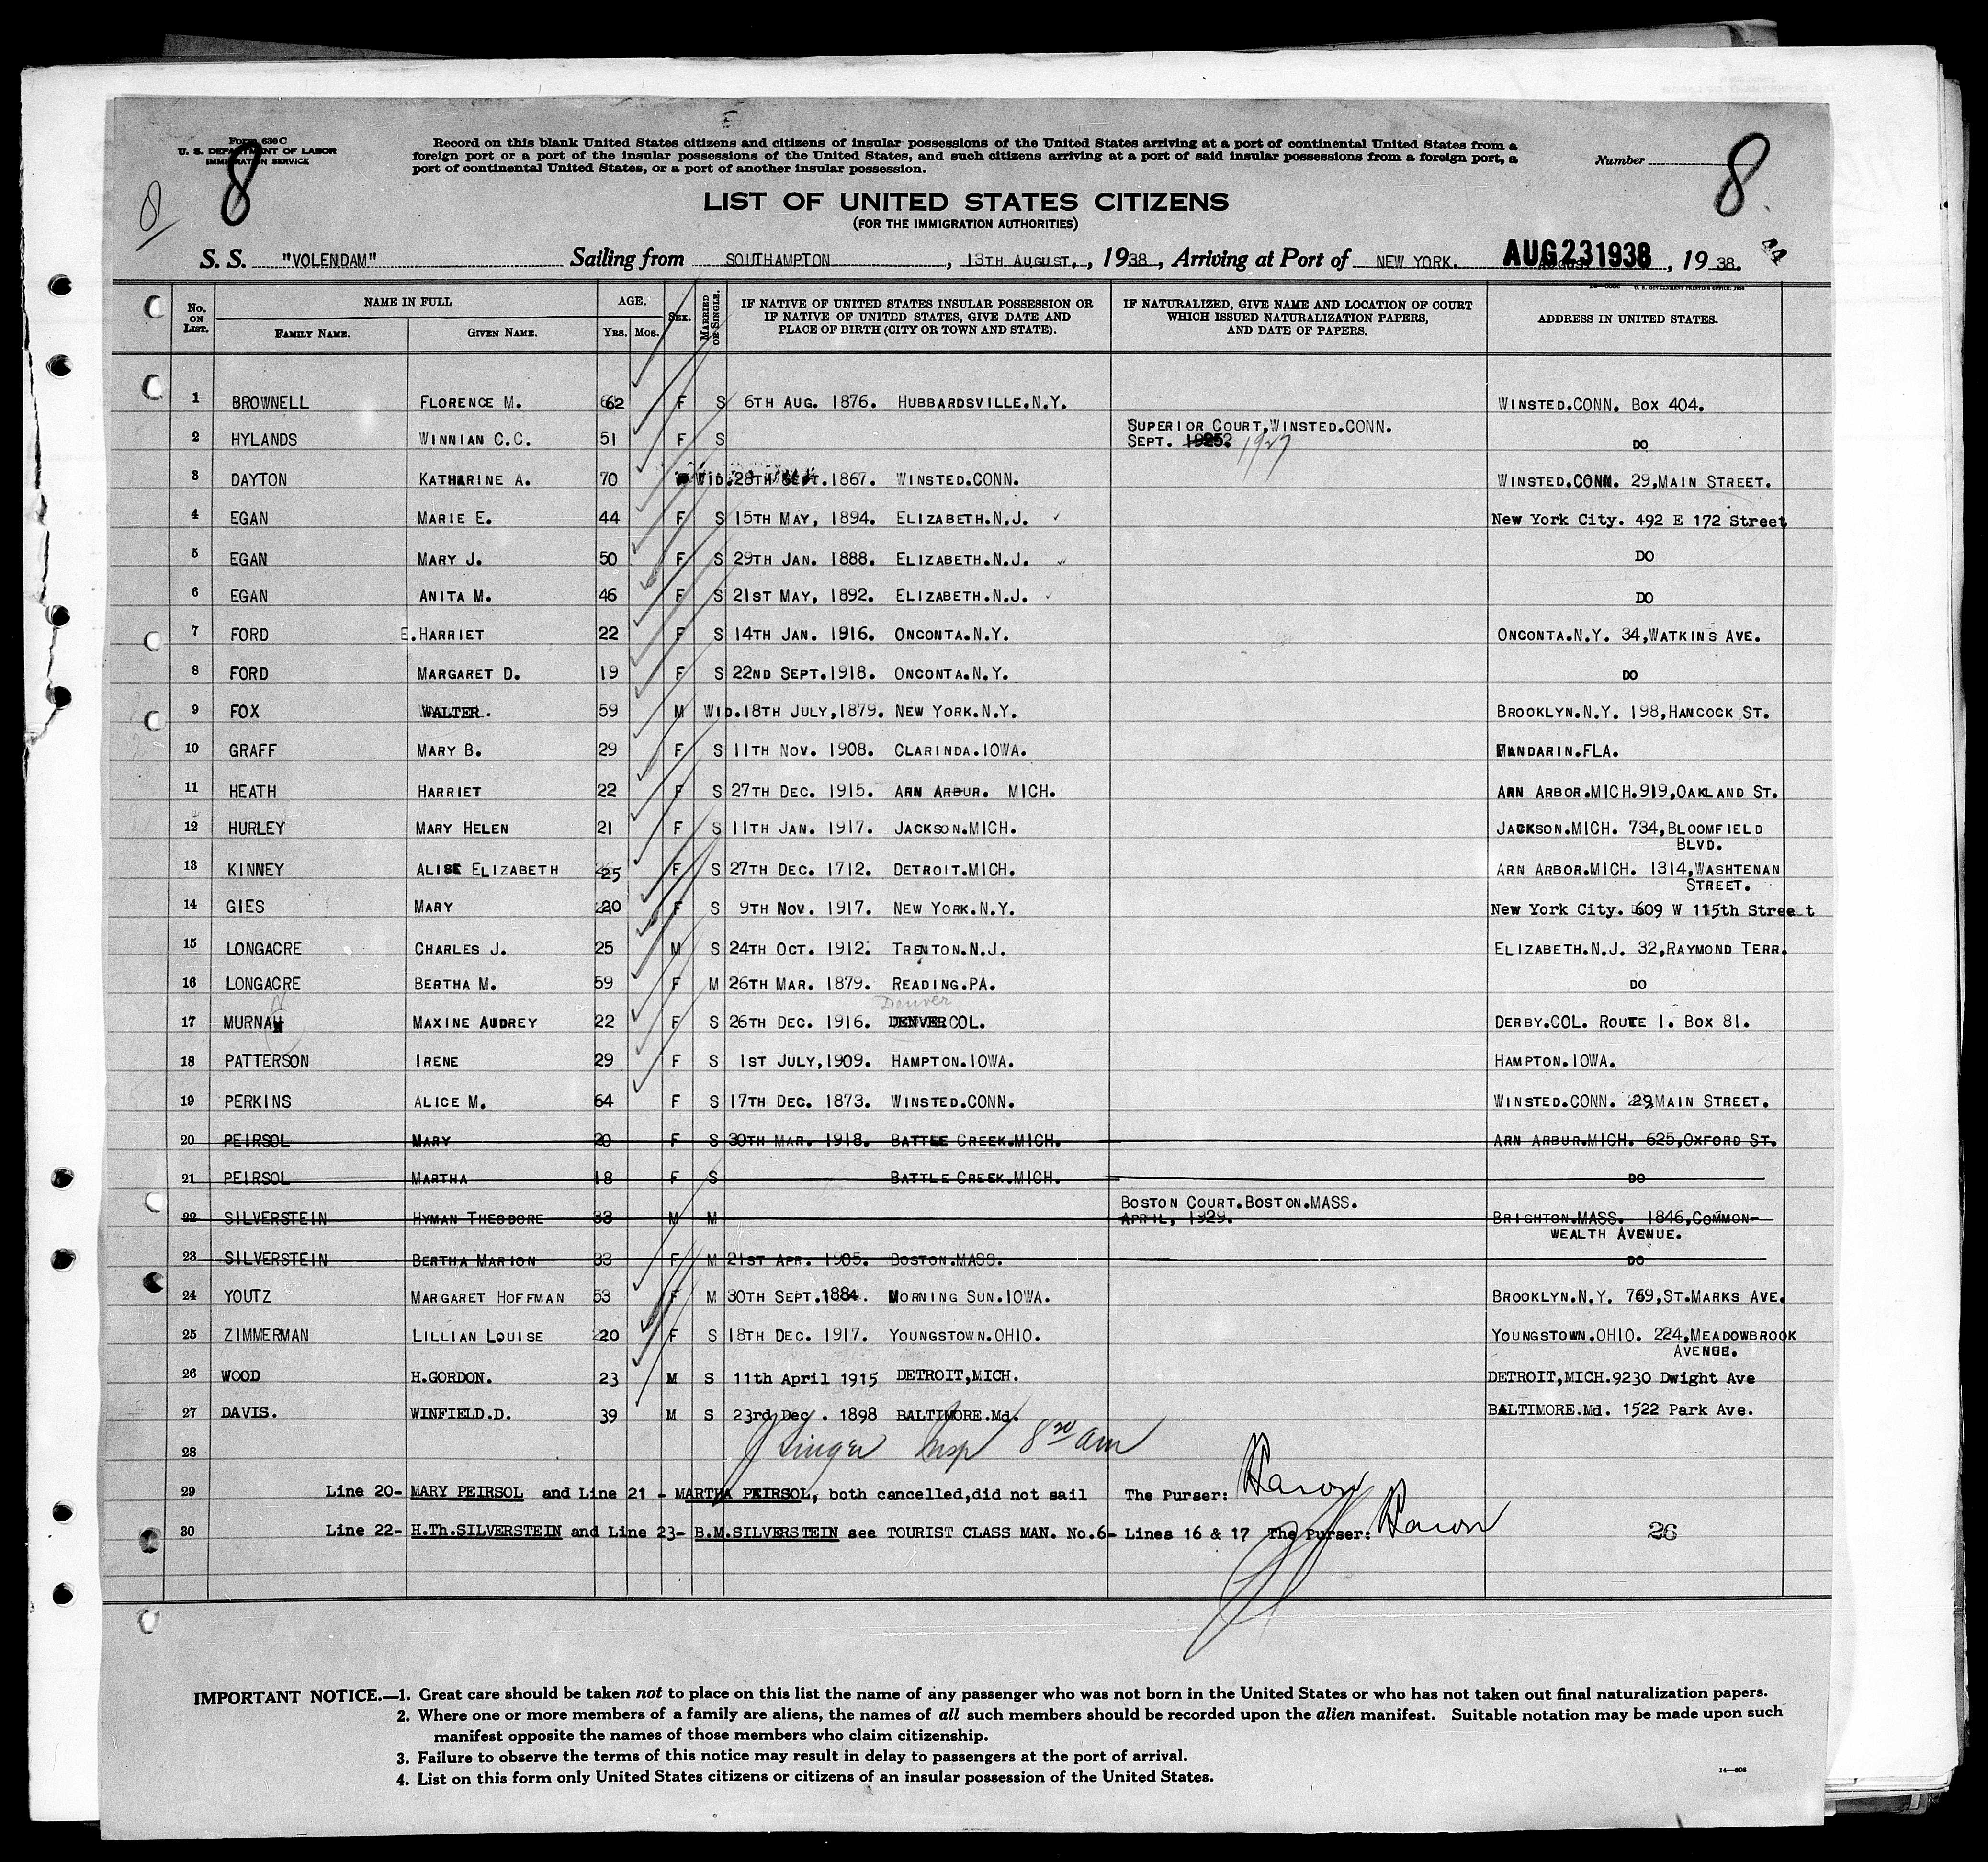 Form 630 C
U. S. DEPARTMENT OF LABOR
IMMIGRATION SERVICE
8
8
Record on this blank United States citizens and citizens of insular possessions of the United States arriving at a port of continental United States from a
foreign port or a port of the insular possessions of the United States, and such citizens arriving at a port of said insular possessions from a foreign port, a
port of continental United States, or a port of another insular possession.
Number 8
LIST OF UNITED STATES CITIZENS
(FOR THE IMMIGRATION AUTHORITIES)
S. S. "VOLENDAM" Sailing from SOUTHAMPTON, 13TH AUGUST, 1938, Arriving at Port of NEW YORK. AUG 23 1938, 19 38.
No. ON LIST. NAME IN FULL FAMILY NAME. GIVEN NAME. AGE. YRS. MOS. SEX. MARRIED OR SINGLE. IF NATIVE OF UNITED STATES INSULAR POSSESSION OR IF NATIVE OF UNITED STATES, GIVE DATE AND PLACE OF BIRTH (CITY OR TOWN AND STATE). IF NATURALIZED, GIVE NAME AND LOCATION OF COURT WHICH ISSUED NATURALIZATION PAPERS, AND DATE OF PAPERS. ADDRESS IN UNITED STATES.
1 BROWNELL FLORENCE M. 62 F S 6TH AUG. 1876. HUBBARDSVILLE.N.Y. WINSTED.CONN. BOX 404.
2 HYLANDS WINNIAN C.C. 51 F S SUPERIOR COURT,WINSTED.CONN. SEPT. 1927 DO
3 DAYTON KATHARINE A. 70 WID. 28TH SEPT.1867. WINSTED.CONN. WINSTED.CONN. 29,MAIN STREET.
4 EGAN MARIE E. 44 F S 15TH MAY, 1894. ELIZABETH.N.J. New York City. 492 E 172 Street
5 EGAN MARY J. 50 F S 29TH JAN. 1888. ELIZABETH.N.J. DO
6 EGAN ANITA M. 46 F S 21ST MAY, 1892. ELIZABETH.N.J. DO
7 FORD E.HARRIET 22 F S 14TH JAN. 1916. ONCONTA.N.Y. ONCONTA.N.Y. 34,WATKINS AVE.
8 FORD MARGARET D. 19 F S 22ND SEPT.1918. ONCONTA.N.Y. DO
9 FOX WALTER. 59 M WID. 18TH JULY,1879. NEW YORK.N.Y. BROOKLYN.N.Y. 198,HANCOCK ST.
10 GRAFF MARY B. 29 F S 11TH NOV. 1908. CLARINDA.IOWA. MANDARIN.FLA.
11 HEATH HARRIET 22 F S 27TH DEC. 1915. ARN ARBUR. MICH. ARN ARBOR.MICH.919,OAKLAND ST.
12 HURLEY MARY HELEN 21 F S 11TH JAN. 1917. JACKSON.MICH. JACKSON.MICH. 734,BLOOMFIELD BLVD.
13 KINNEY ALISE ELIZABETH 25 F S 27TH DEC. 1712. DETROIT.MICH. ARN ARBOR.MICH. 1314,WASHTENAN STREET.
14 GIES MARY 20 F S 9TH NOV. 1917. NEW YORK.N.Y. New York City. 609 W 115th Street
15 LONGACRE CHARLES J. 25 M S 24TH OCT. 1912. TRENTON.N.J. ELIZABETH.N.J. 32,RAYMOND TERR.
16 LONGACRE BERTHA M. 59 F M 26TH MAR. 1879. READING.PA. DO
Denver
17 MURNAH MAXINE AUDREY 22 F S 26TH DEC. 1916. DENVER COL. DERBY.COL. ROUTE 1. BOX 81.
18 PATTERSON IRENE 29 F S 1ST JULY,1909. HAMPTON.IOWA. HAMPTON.IOWA.
19 PERKINS ALICE M. 64 F S 17TH DEC. 1873. WINSTED.CONN. WINSTED.CONN. 29,MAIN STREET.
20 PEIRSOL MARY 20 F S 30TH MAR. 1918. BATTLE CREEK.MICH. ARN ARBUR.MICH. 625,OXFORD ST.
21 PEIRSOL MARTHA 18 F S BATTLE CREEK.MICH. DO
22 SILVERSTEIN HYMAN THEODORE 33 M M BOSTON COURT.BOSTON.MASS. APRIL, 1929. BRIGHTON.MASS. 1846,COMMON- WEALTH AVENUE.
23 SILVERSTEIN BERTHA MARION 33 F M 21ST APR. 1905. BOSTON.MASS. DO
24 YOUTZ MARGARET HOFFMAN 53 F M 30TH SEPT.1884. MORNING SUN.IOWA. BROOKLYN.N.Y. 769,ST.MARKS AVE.
25 ZIMMERMAN LILLIAN LOUISE 20 F S 18TH DEC. 1917. YOUNGSTOWN.OHIO. YOUNGSTOWN.OHIO. 224,MEADOWBROOK AVENUE.
26 WOOD H.GORDON. 23 M S 11th April 1915 DETROIT,MICH. DETROIT,MICH.9230 Dwight Ave
27 DAVIS. WINFIELD.D. 39 M S 23rd Dec. 1898 BALTIMORE.Md. BALTIMORE.Md. 1522 Park Ave.
28 Insp 8 30 am
29 Line 20- MARY PEIRSOL and Line 21 - MARTHA PEIRSOL, both cancelled,did not sail The Purser:
30 Line 22- H.Th.SILVERSTEIN and Line 23- B.M.SILVERSTEIN see TOURIST CLASS MAN. No.6- Lines 16 & 17 The Purser: 26
IMPORTANT NOTICE.—1. Great care should be taken not to place on this list the name of any passenger who was not born in the United States or who has not taken out final naturalization papers.
2. Where one or more members of a family are aliens, the names of all such members should be recorded upon the alien manifest. Suitable notation may be made upon such
manifest opposite the names of those members who claim citizenship.
3. Failure to observe the terms of this notice may result in delay to passengers at the port of arrival.
4. List on this form only United States citizens or citizens of an insular possession of the United States.